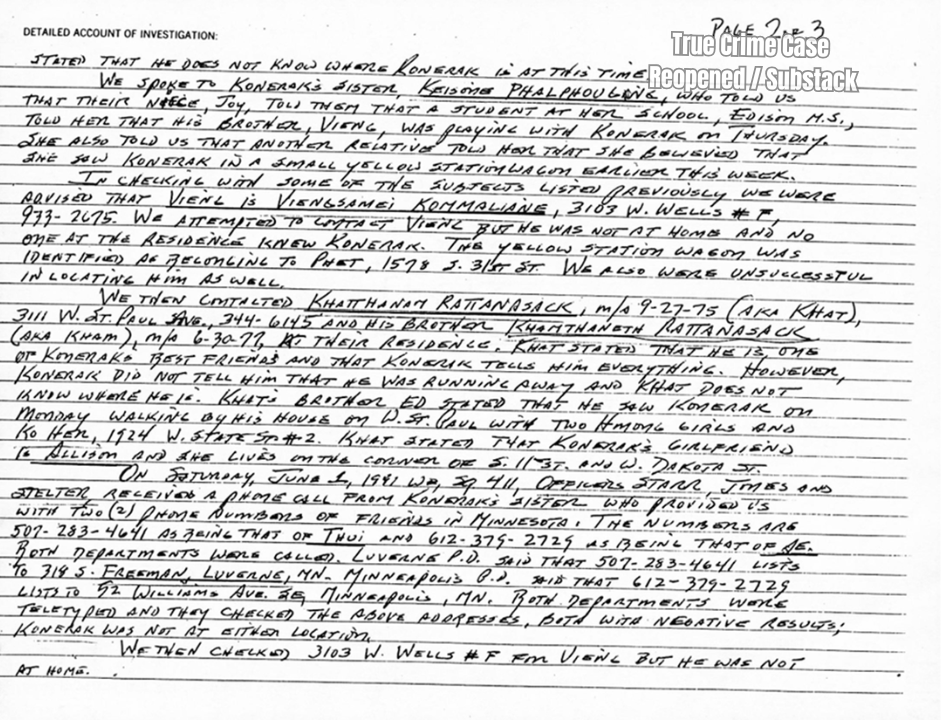 DETAILED ACCOUNT OF INVESTIGATION:
PAGE 2 OF 3
True Crime Case
Reopened / Substack
STATED THAT HE DOES NOT KNOW WHERE KONERAK IS AT THIS TIME
WE SPOKE TO KONERAK'S SISTER, KEISONE PHALPHOUGENG, WHO TOLD US
THAT THEIR NIECE, JOY, TOLD THEM THAT A STUDENT AT HER SCHOOL, EDISON M.S.,
TOLD HER THAT HIS BROTHER, VIENG, WAS PLAYING WITH KONERAK ON THURSDAY.
SHE ALSO TOLD US THAT ANOTHER RELATIVE TOLD HER THAT SHE BELIEVED THAT
SHE SAW KONERAK IN A SMALL YELLOW STATIONWAGON EARLIER THIS WEEK.
IN CHECKING WITH SOME OF THE SUBJECTS LISTED PREVIOUSLY WE WERE
ADVISED THAT VIENG IS VIENGSAMEI KOMMALIANE, 3103 W. WELLS # F,
933-2675. WE ATTEMPTED TO CONTACT VIENG BUT HE WAS NOT AT HOME AND NO
ONE AT THE RESIDENCE KNEW KONERAK. THE YELLOW STATION WAGON WAS
IDENTIFIED AS BELONGING TO PHET, 1578 S. 31ST ST. WE ALSO WERE UNSUCCESSFUL
IN LOCATING HIM AS WELL.
WE THEN CONTACTED KHATTHANAM RATTANASACK, M/A 9-27-75 (AKA KHAT),
3111 W. ST. PAUL AVE., 344-6145 AND HIS BROTHER KHAMTHANETH RATTANASACK
(AKA KHAM), M/A 6-30-77, AT THEIR RESIDENCE. KHAT STATED THAT HE IS ONE
OF KONERAKS BEST FRIENDS AND THAT KONERAK TELLS HIM EVERYTHING. HOWEVER,
KONERAK DID NOT TELL HIM THAT HE WAS RUNNING AWAY AND KHAT DOES NOT
KNOW WHERE HE IS. KHAT'S BROTHER ED STATED THAT HE SAW KONERAK ON
MONDAY WALKING BY HIS HOUSE ON W. ST. PAUL WITH TWO HMONG GIRLS AND
KO HER, 1924 W. STATE ST. #2. KHAT STATED THAT KONERAK'S GIRLFRIEND
IS ALLISON AND SHE LIVES ON THE CORNER OF S. 11TH ST. AND W. DAKOTA ST.
ON SATURDAY, JUNE 1, 1991 WE, SQ 411, OFFICERS STARR, JONES AND
STELTER RECEIVED A PHONE CALL FROM KONERAK'S SISTER WHO PROVIDED US
WITH TWO (2) PHONE NUMBERS OF FRIENDS IN MINNESOTA. THE NUMBERS ARE
507-283-4641 AS BEING THAT OF THUI AND 612-379-2729 AS BEING THAT OF AE.
BOTH DEPARTMENTS WERE CALLED. LUVERNE P.D. SAID THAT 507-283-4641 LISTS
TO 318 S. FREEMAN, LUVERNE, MN. MINNEAPOLIS P.D. SAID THAT 612-379-2729
LISTS TO 92 WILLIAMS AVE. SE, MINNEAPOLIS, MN. BOTH DEPARTMENTS WERE
TELETYPED AND THEY CHECKED THE ABOVE ADDRESSES, BOTH WITH NEGATIVE RESULTS;
KONERAK WAS NOT AT EITHER LOCATION.
WE THEN CHECKED 3103 W. WELLS # F FOR VIENG BUT HE WAS NOT
AT HOME.